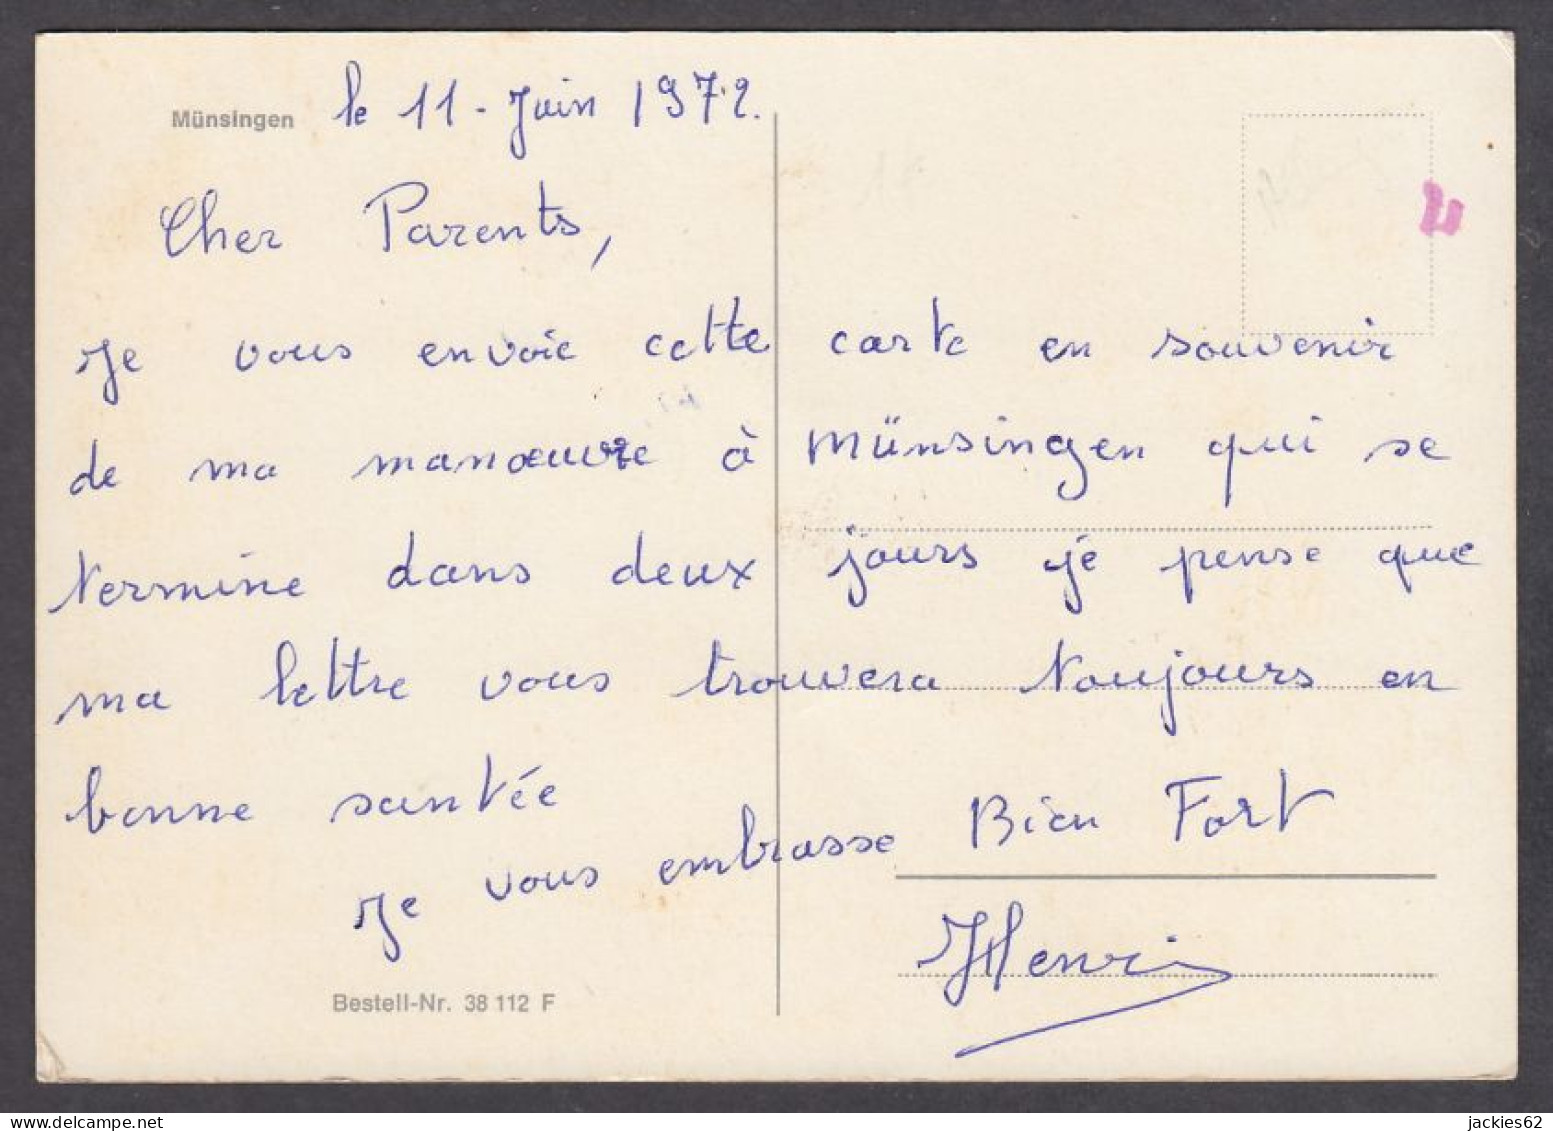 Münsingen le 11 - Juin 1972.
Cher Parents,
Je vous envoie cette carte en souvenir
de ma manœuvre à Münsingen qui se
termine dans deux jours je pense que
ma lettre vous trouvera toujours en
bonne santée
Je vous embrasse Bien Fort
Henri
Bestell-Nr. 38 112 F
delcampe.net
jackies62